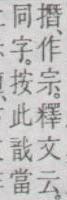 撍、作宗。釋文云、
同字。按此戠當